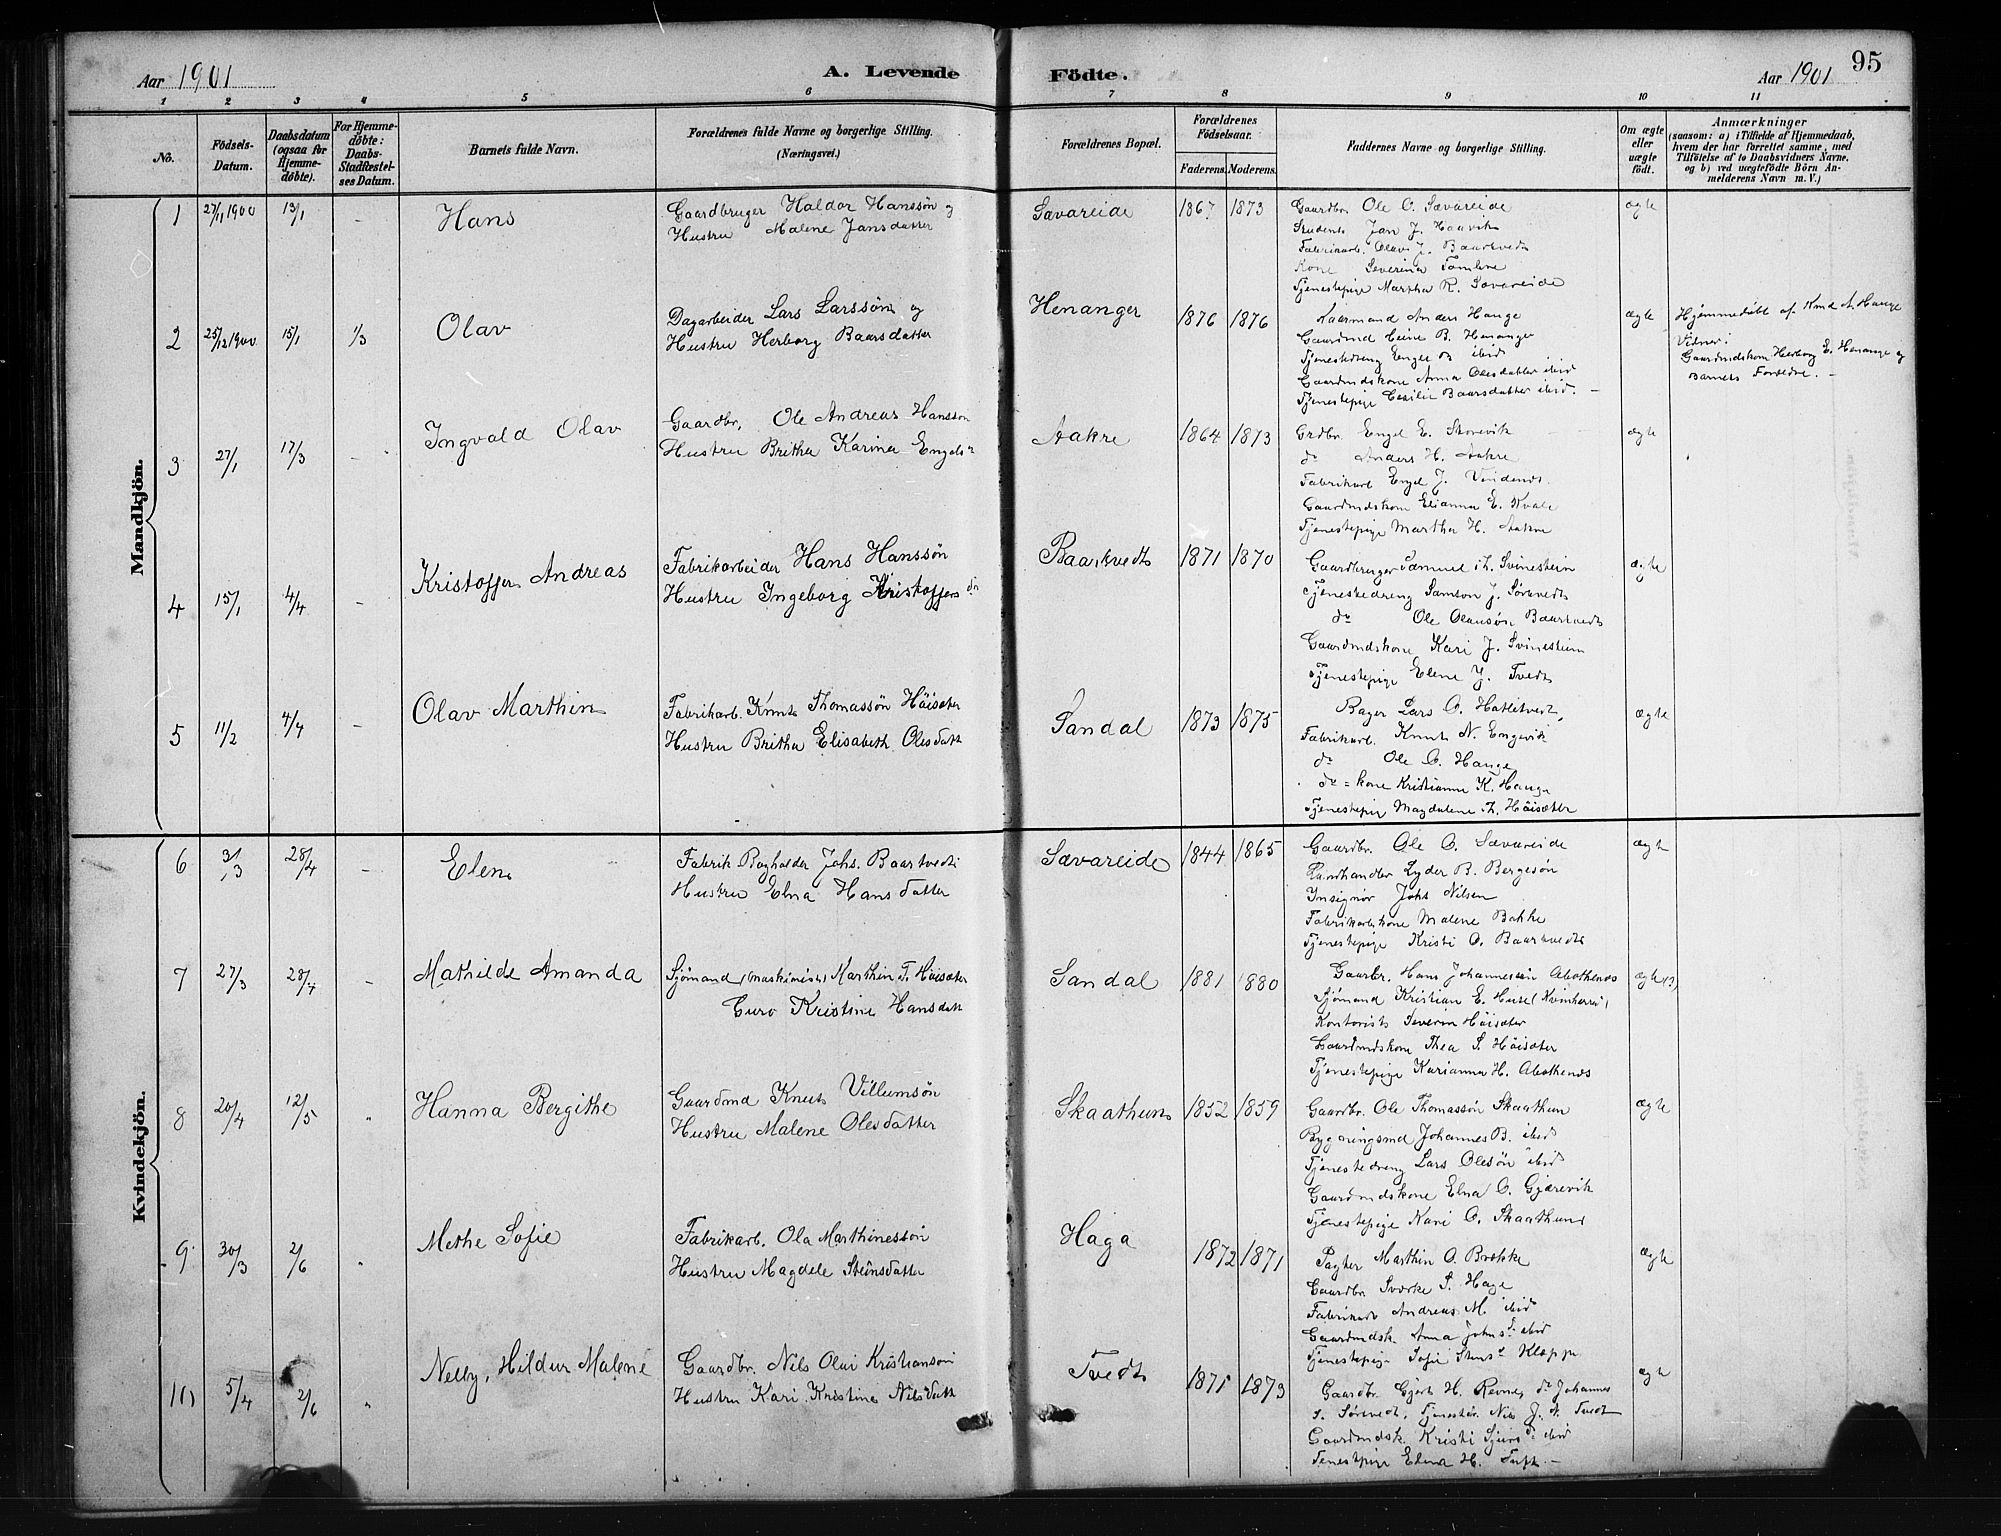 Aar 1901
A. Levende
Födte.
Aar 1901
95
1 2 3 4 5 6 7 8 9 10 11
No.
Födsels-
Datum.
Daabsdatum
(ogsaa for
Hjemme-
döbte).
For Hjemme-
döbte:
Daabs-
Stadfæstel-
ses Datum.
Barnets fulde Navn.
Forældrenes fulde Navne og borgerlige Stilling.
(Næringsvei.)
Forældrenes Bopæl.
Forældrenes
Födselsaar.
Faderens. Moderens.
Faddernes Navne og borgerlige Stilling.
Om ægte
eller
uægte
födt.
Anmærkninger
(saasom: a) i Tilfælde af Hjemmedaab,
hvem der har forrettet samme, med
Tilföielse af to Daabsvidners Navne,
og b) ved uægtefödte Börn An-
melderens Navn m. V.)
Mandkjön.
1 27/11 1900 13/1 - Hans
Gaardbruger Haldor Hanssøn og
Hustru Malene Jansdatter
Sævareide 1867 1873
Gaardbr. Ole O. Sævareide
Student Jan J. Haavik
Fabrikarb. Olav J. Baartvedt
Kone Severina
Tjenestepige Martha R. Sævareide
ægte
2 25/12 1900 15/1 1/3 Olav
Dagarbeider Lars Larssøn og
Hustru Herborg Baarsdatter
Henanger 1876 1876
Anders Hauge
Gaardmd Heine B. Henanger
Tjenestedreng Engel B ibid
Gaardmdskone Anna Olesdatter ibid
Tjenestepige Cecilie Baarsdatter ibid. -
ægte
Hjemmedøbt af A. Hauge
Vidner:
Gaardmdskone Herborg E. Henange og
Barnets Forældre. -
3 27/1 17/3 - Ingvald Olav
Gaardbr. Ole Andreas Hanssøn
Hustru Britha Karina Engelsd
Aakre 1864 1873
Grdbr. Engel E. Storevik
do Anders H. Aakre
Fabrikarb Engel J. Vindenes.
Gaardmdskone Elianna E. Kvale
Tjenestepige Martha H. Aakre
ægte
4 15/1 4/4 - Kristoffer Andreas
Fabrikarbeider Hans Hanssøn
Hustru Ingeborg Kristoffersdr
Baartvedt 1871 1870
Gaardbruger Samuel Th. Svinesheim
Tjenestedreng Samson J. Sørtvedt
do Ole Olaussøn Baartvedt
Gaardmdskone Kari J. Svinesheim
Tjenestepige Elene J. Tvedt
ægte
5 11/2 4/4 - Olav Marthin
Fabrikarb. Knut Thomassøn Høisæter
Hustru Britha Elisabeth Olesdatt
Sandal 1873 1875
Bager Lars O. Hatletvedt,
Fabrikarb. Knut N. Engevik
do Ole O. Hauge
do = kone Kristianna K. Hauge
Tjenestepig Magdalene Th. Høisæter
ægte
Kvindekjön.
6 3/3 28/4 - Elen
Fabrik Bogholder Johs. Baartvedt
Hustru Elna Hansdatter
Sævareide 1844 1865
Gaardbr. Ole O. Sævareide
Landhandler Lyder B. Bergesøn
Insigniør Johs Nilsen
Fabrikarbkone Malene Bakke
Tjenestepige Kristi O. Baartvedt
ægte
7 27/3 28/4 - Mathilde Amanda
Sjømand (maskinist) Marthin T. Høisæter
Guro Kristine Hansdatt
Sandal 1881 1880
Gaarbr. Hans Johannessøn Abothenes
Sjømand Kristian E. Huse (Kvinherre)
Kontorist Severin Høisæter
Gaardmdskone Thea S. Høisæter
Tjenestepige Karianna H. Abothenes
ægte (3)
8 20/4 12/5 " Hanna Bergithe
Gaardmd Knut Villumsøn
Hustru Malene Olesdatter
Skaathun 1852 1859
Gaardbr. Ole Thomassøn Skaathun
Bygningsmd Johannes B. ibid
Tjenestedreng Lars Olesøn ibid
Gaardmdskone Elna O. Gjærevik
Tjenestepige Kari O. Skaathun
ægte
9 30/3 2/6 " Methe Sofie
Fabrikarb. Ola Marthinessøn
Hustru Magdele Steinsdatter
Haga 1872 1871
Pagter Marthin O. Brekke
Gaardbr. Sverke S. Hage
Fabrikarb Andreas M. ibid
Gaardmdsk. Anna Johnsd ibid
Tjenestepige Sofie Stensd Kleppe
ægte
10 5/4 2/6 " Nelly, Hildur Malene
Gaardbr. Nils Olai Kristiansøn
Hustru Kari Kristine Nilsdatt
Tvedt 1871 1873
Gaardbr. Gjert H. Revne, do Johannes
S. Sørtvedt, Tjenestedr. Nils J. N. Tvedt
Gaardmdsk. Kristi Sjursd ibid
Tenestepige Elina H. Tuft. -
ægte